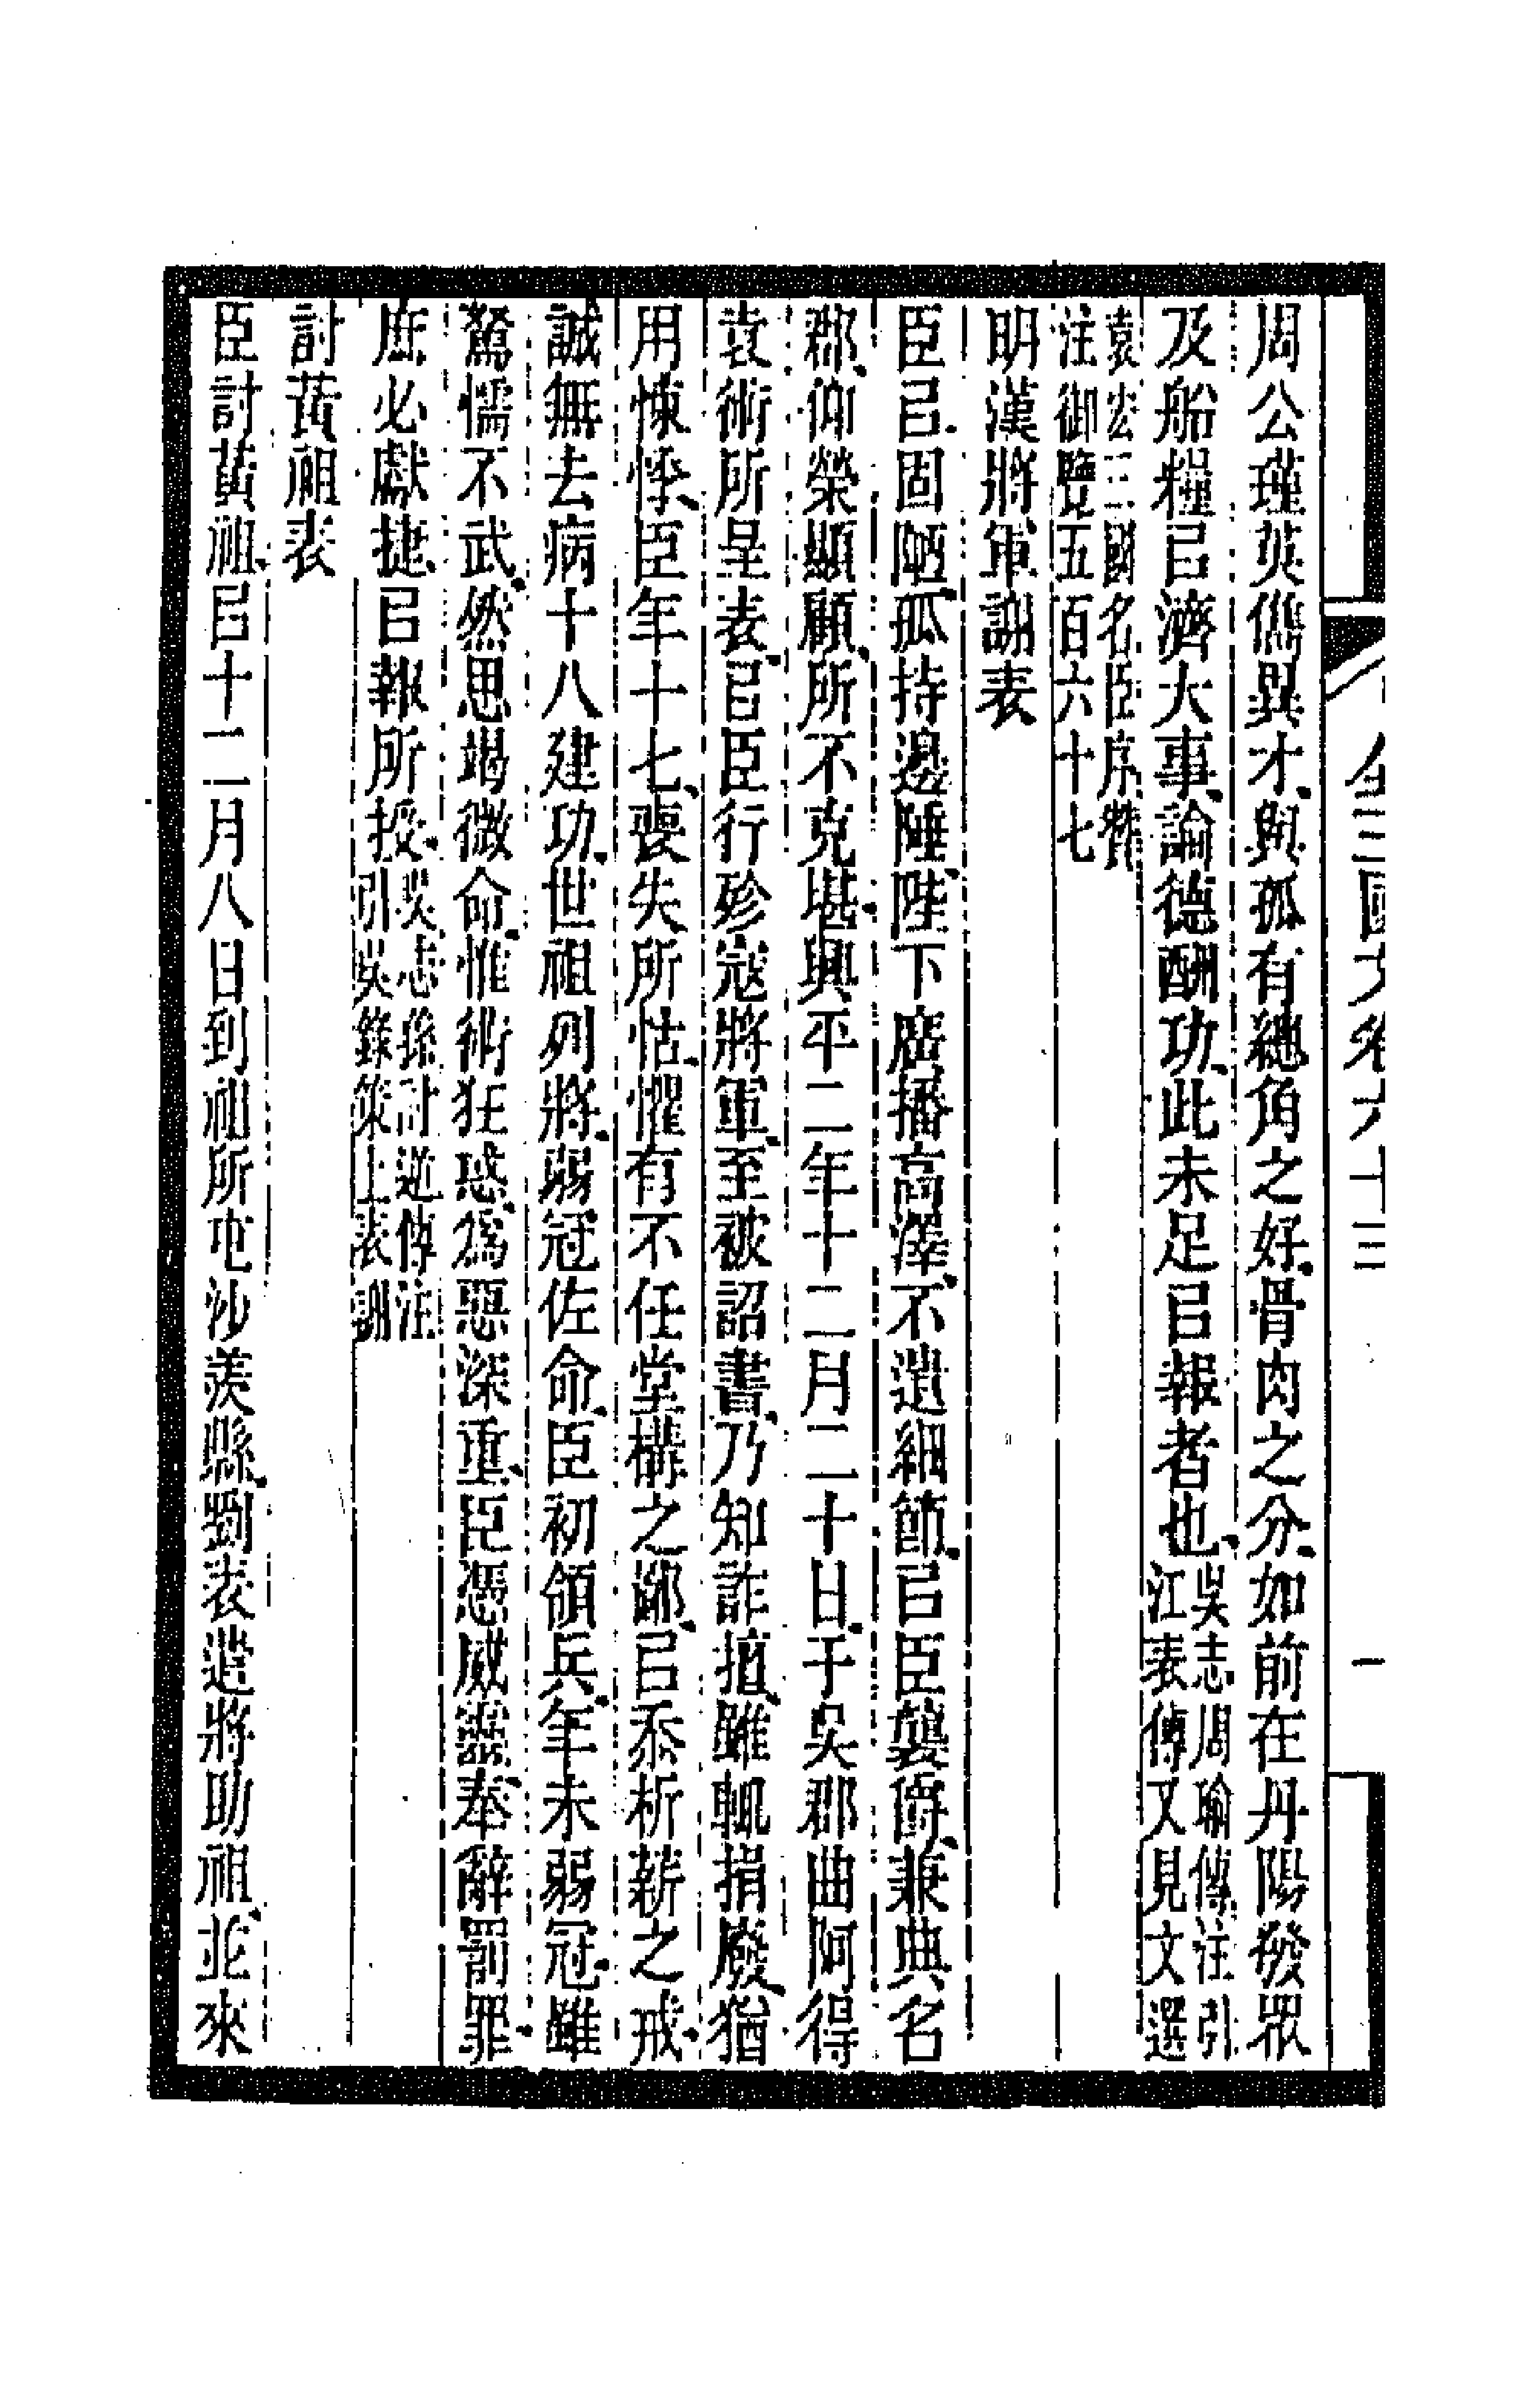 全三國文卷六十三 一
周公瑾英儁異才、與孤有總角之好、骨肉之分、如前在丹陽、發眾
及船糧㠯濟大事、論德酬功、此未足㠯報者也、吳志周瑜傳注引
江表傳又見文選
袁宏三國名臣序贊
注御覽五百六十七
明漢將軍謝表
臣㠯固陋、孤持邊陲、陛下廣播高澤、不遺細節、㠯臣襲爵、兼典名
郡、仰榮顧顧、所不克堪、興平二年十二月二十日、于吳郡曲阿得
袁術所呈表、㠯臣行殄寇將軍、至被詔書、乃知詐擅、雖輒捐廢、猶
用悚悸、臣年十七、喪失所怙、懼有不任堂構之鄙、㠯忝析薪之戒、
誠無去病十八建功、世祖列將、弱冠佐命、臣初領兵、年未弱冠、雖
駑懦不武、然思竭微命、惟術狂惑、為惡深重、臣憑威靈、奉辭罰罪、
庶必獻捷、㠯報所授、吳志孫討逆傳注
引吳錄策上表謝
討黃祖表
臣討黃祖、㠯十二月八日到祖所屯沙羨縣、劉表遣將助祖、並來